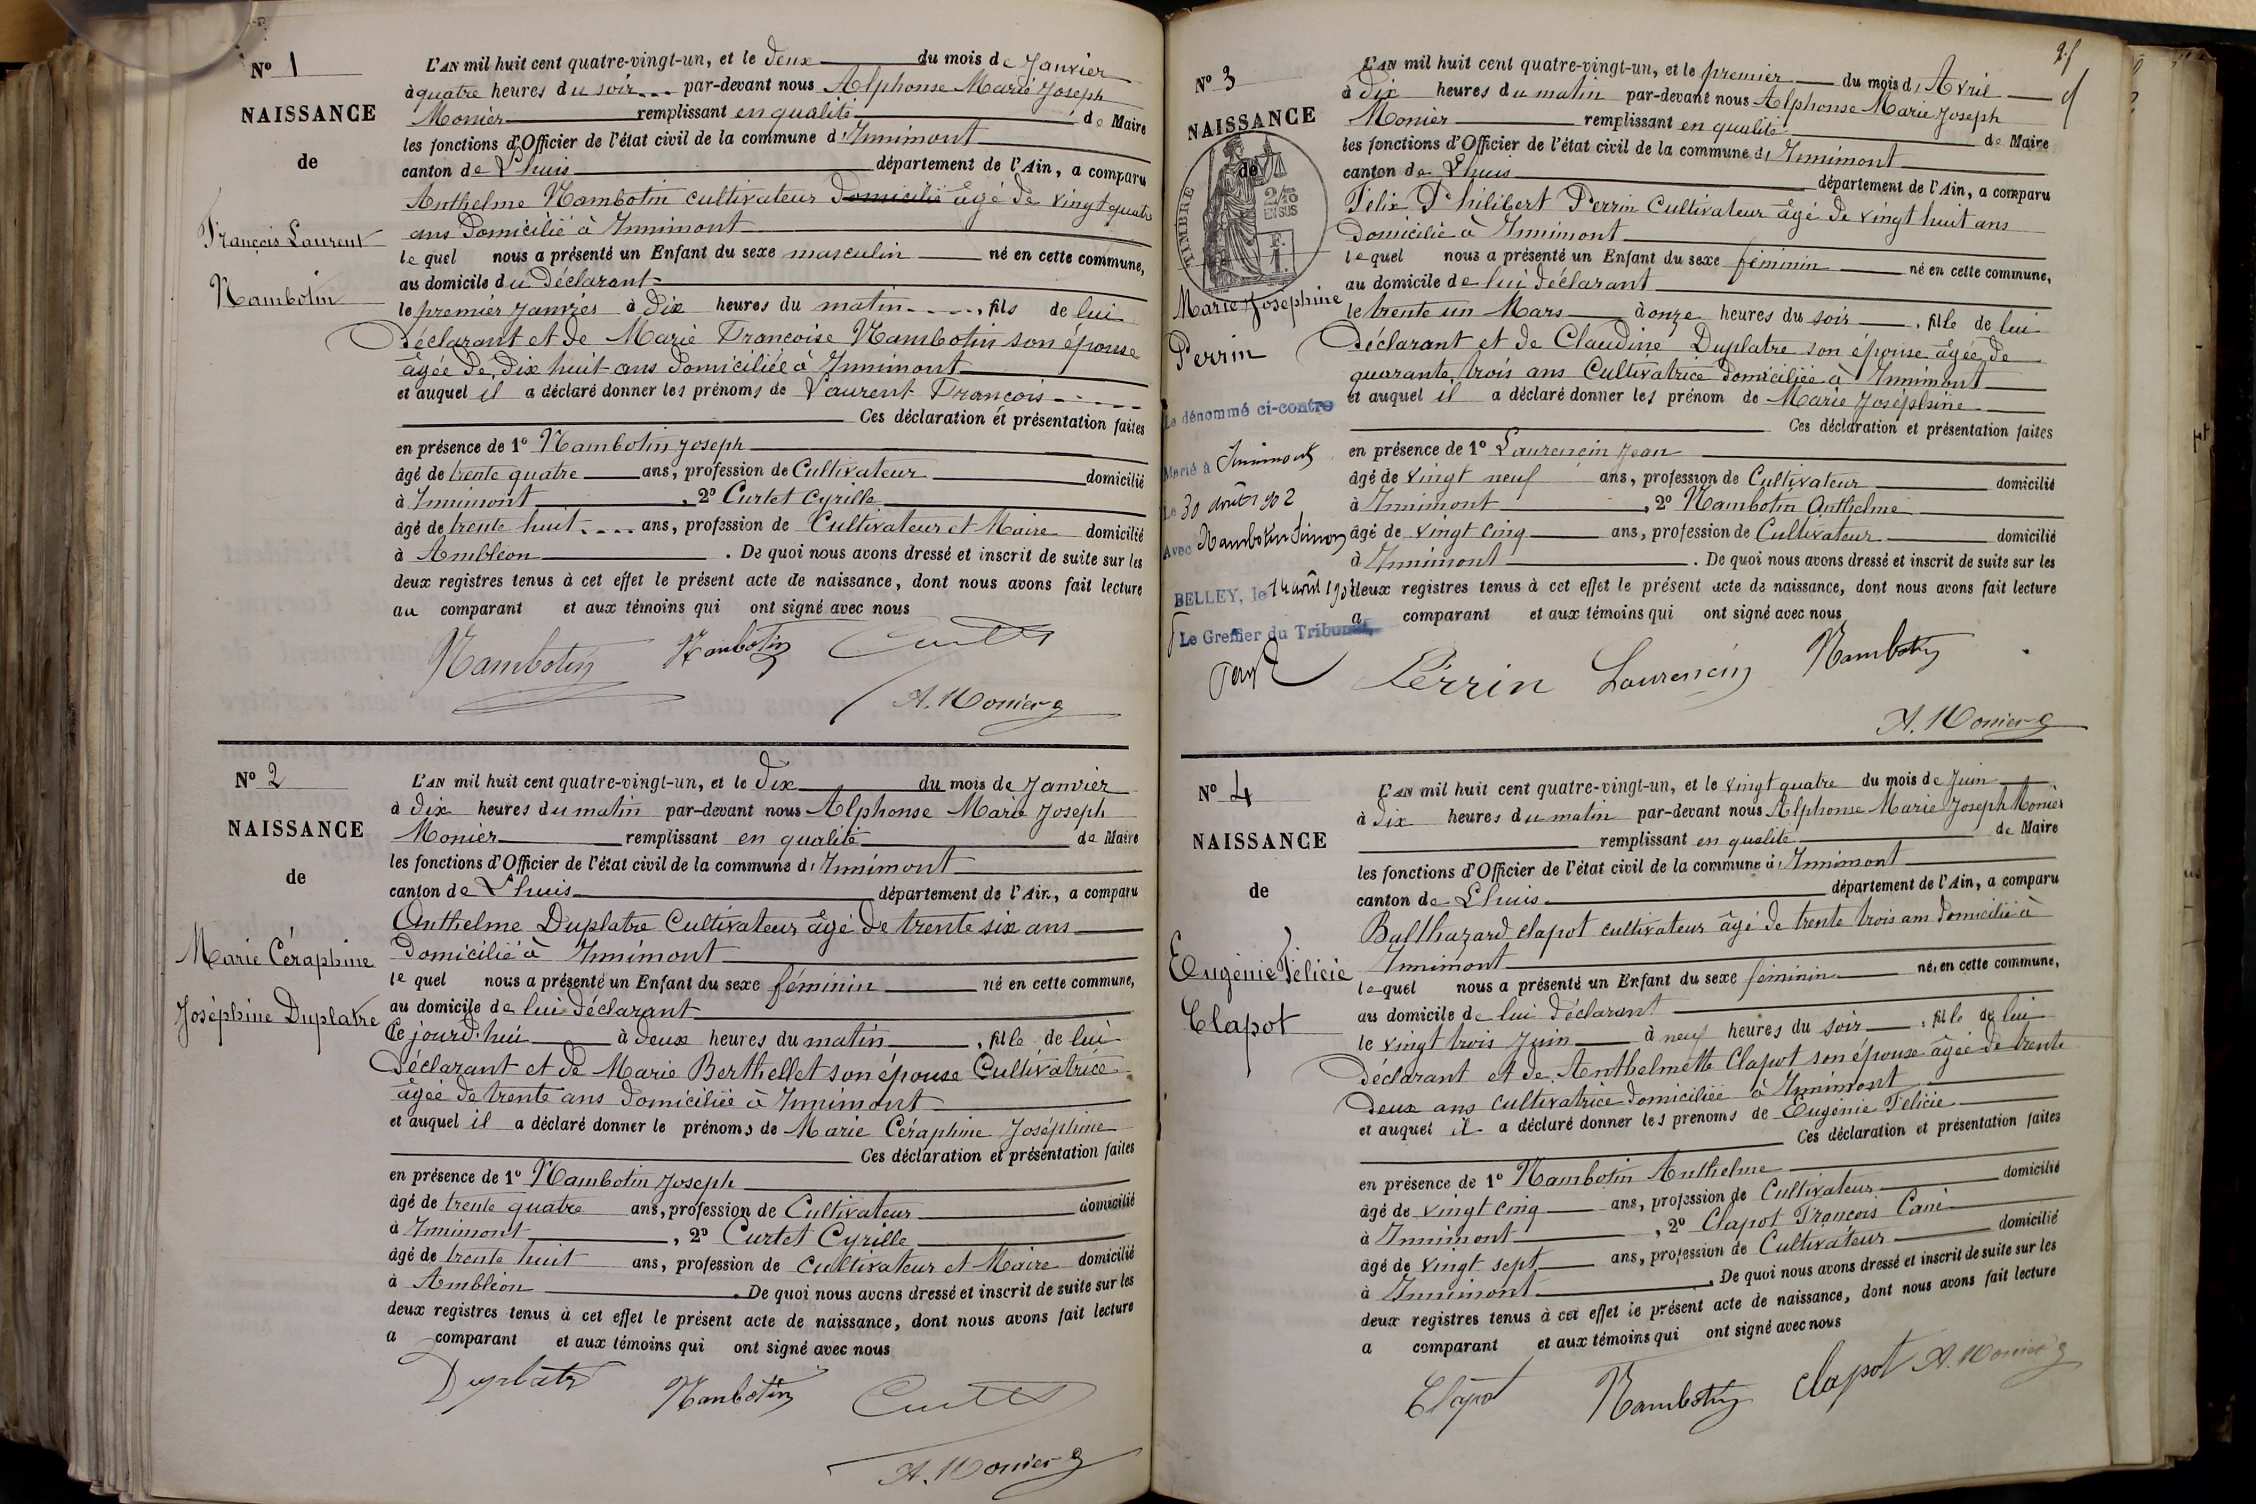 N° 1
NAISSANCE
de
François Laurent
Nambotin
L'AN mil huit cent quatre-vingt-un, et le deux du mois de Janvier
à quatre heures du soir par-devant nous Alphonse Marie Joseph
Monier remplissant en qualité de Maire
les fonctions d'Officier de l'état civil de la commune d'Innimont
canton de Lhuis département de l'Ain, a comparu
Anthelme Nambotin cultivateur domicilié âgé de vingt quatre
ans Domicilié à Innimont
le quel nous a présenté un Enfant du sexe masculin né en cette commune,
au domicile du Déclarant
le premier Janvier à dix heures du matin, fils de lui
Déclarant et de Marie Francoise Nambotin son épouse
âgée de dix huit ans domiciliée à Innimont
et auquel il a déclaré donner les prénoms de Laurent Francois
Ces déclaration et présentation faites
en présence de 1° Nambotin Joseph
âgé de trente quatre ans, profession de Cultivateur domicilié
à Innimont, 2° Curtet Cyrille
âgé de trente huit ans, profession de Cultivateur et Maire domicilié
à Ambléon. De quoi nous avons dressé et inscrit de suite sur les
deux registres tenus à cet effet le présent acte de naissance, dont nous avons fait lecture
au comparant et aux témoins qui ont signé avec nous
Nambotin Nambotin Curtet
A. Monier
N° 2
NAISSANCE
de
Marie Céraphine
Joséphine Duplatre
L'AN mil huit cent quatre-vingt-un, et le Dix du mois de Janvier
à dix heures du matin par-devant nous Alphonse Marie Joseph
Monier remplissant en qualité de Maire
les fonctions d'Officier de l'état civil de la commune d'Innimont
canton de Lhuis département de l'Ain, a comparu
Anthelme Duplatre Cultivateur âgé de trente six ans
Domicilié à Innimont
le quel nous a présenté un Enfant du sexe féminin né en cette commune,
au domicile de lui déclarant
Ce jourd'hui à deux heures du matin, fille de lui
Déclarant et de Marie Berthellet son épouse Cultivatrice
âgée de trente ans domiciliée à Innimont
et auquel il a déclaré donner le prénoms de Marie Céraphine Joséphine
Ces déclaration et présentation faites
en présence de 1° Nambotin Joseph
âgé de trente quatre ans, profession de Cultivateur domicilié
à Innimont, 2° Curtet Cyrille
âgé de trente huit ans, profession de Cultivateur et Maire domicilié
à Ambléon. De quoi nous avons dressé et inscrit de suite sur les
deux registres tenus à cet effet le présent acte de naissance, dont nous avons fait lecture
a comparant et aux témoins qui ont signé avec nous
Duplatre Nambotin Curtet
A. Monier
N° 3
NAISSANCE
de
TIMBRE
2/10
EN SUS
Marie Josephine
Perrin
Le dénommé ci-contre
Marié à Innimont
Le 30 août 1902
Avec Nambotin Simon
BELLEY, le
Le Greffier du Tribunal,
L'AN mil huit cent quatre-vingt-un, et le premier du mois d'Avril
à dix heures du matin par-devant nous Alphonse Marie Joseph
Monier remplissant en qualité de Maire
les fonctions d'Officier de l'état civil de la commune d'Innimont
canton de Lhuis département de l'Ain, a comparu
Félix Philibert Perrin Cultivateur âgé de vingt huit ans
Domicilié à Innimont
le quel nous a présenté un Enfant du sexe féminin né en cette commune,
au domicile de lui déclarant
le trente un Mars à onze heures du soir, fille de lui
Déclarant et de Claudine Duplatre son épouse âgée de
quarante trois ans Cultivatrice domiciliée à Innimont
et auquel il a déclaré donner les prénom de Marie Joséphine
Ces déclaration et présentation faites
en présence de 1° Laurencin Jean
âgé de vingt neuf ans, profession de Cultivateur domicilié
à Innimont, 2° Nambotin Anthelme
âgé de vingt cinq ans, profession de Cultivateur domicilié
à Innimont. De quoi nous avons dressé et inscrit de suite sur les
deux registres tenus à cet effet le présent acte de naissance, dont nous avons fait lecture
a comparant et aux témoins qui ont signé avec nous
Perrin Laurencin Nambotin
A. Monier
N° 4
NAISSANCE
de
Eugénie Félicie
Clapot
L'AN mil huit cent quatre-vingt-un, et le vingt quatre du mois de Juin
à dix heures du matin par-devant nous Alphonse Marie Joseph Monier
remplissant en qualité de Maire
les fonctions d'Officier de l'état civil de la commune d'Innimont
canton de Lhuis département de l'Ain, a comparu
Balthazard Clapot cultivateur âgé de trente trois ans domicilié à
Innimont
le quel nous a présenté un Enfant du sexe féminin né en cette commune,
au domicile de lui déclarant
le vingt trois Juin à neuf heures du soir, fille de lui
Déclarant et de Anthelmette Clapot son épouse âgée de trente
deux ans cultivatrice domiciliée à Innimont
et auquel il a déclaré donner les prénoms de Eugénie Félicie
Ces déclaration et présentation faites
en présence de 1° Nambotin Anthelme
âgé de vingt cinq ans, profession de Cultivateur domicilié
à Innimont, 2° Clapot François
âgé de vingt sept ans, profession de Cultivateur domicilié
à Innimont. De quoi nous avons dressé et inscrit de suite sur les
deux registres tenus à cet effet le présent acte de naissance, dont nous avons fait lecture
a comparant et aux témoins qui ont signé avec nous
Clapot Nambotin Clapot A. Monier